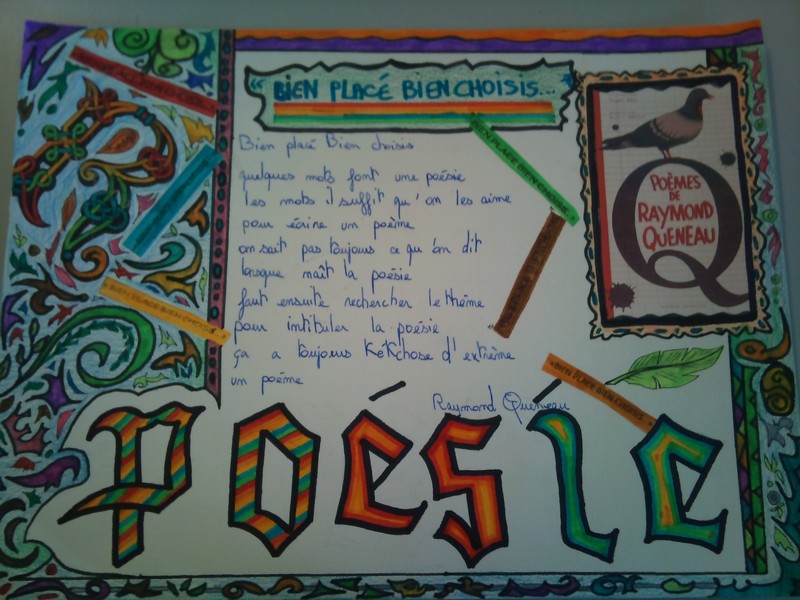 "BIEN PLACÉ BIEN CHOISIS...
Bien placé Bien choisis
quelques mots font une poésie
les mots il suffit qu'on les aime
pour écrire un poème
on sait pas toujours ce qu'on dit
lorsque naît la poésie
faut ensuite rechercher le thème
pour intituler la poésie
ça a toujours kékchose d'extrême
un poème
Raymond Queneau
POÈMES
DE
RAYMOND
QUENEAU
"BIEN PLACE BIEN CHOISIS..."
"BIEN PLACE BIEN CHOISIS..."
"BIEN PLACE BIEN CHOISIS..."
poésie